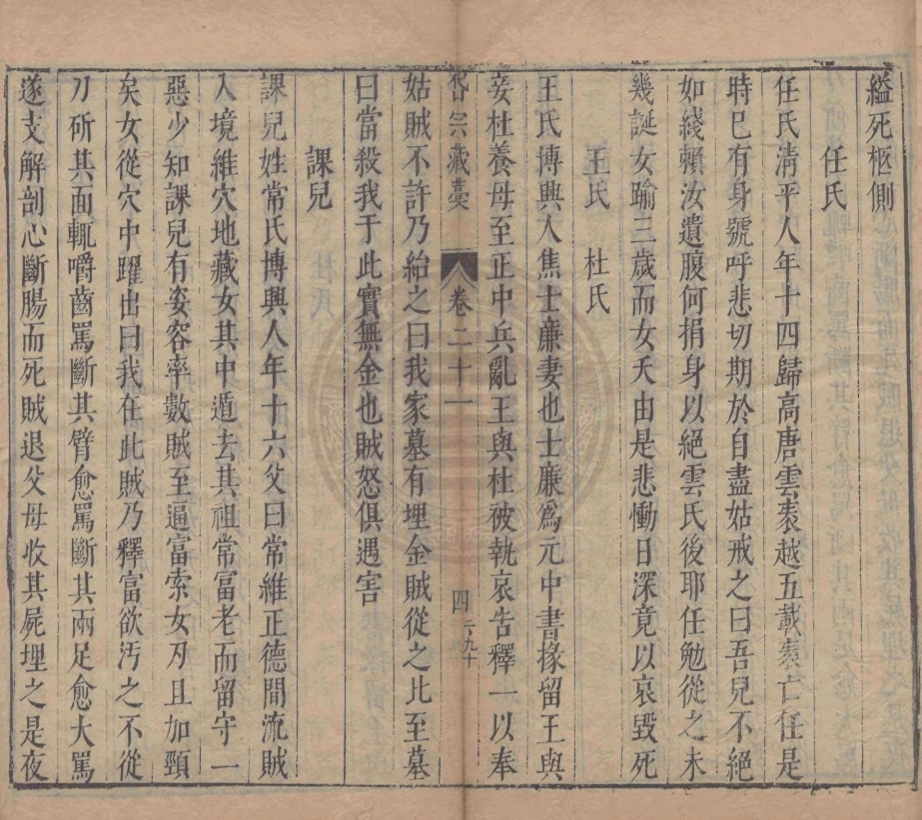 縊死柩側
任氏
任氏清平人年十四歸高唐雲表越五載表亡任是
時已有身號呼悲切期於自盡姑戒之曰吾兒不絕
如綫賴汝遺腹何捐身以絕雲氏後耶任勉從之未
幾誕女踰三歲而女夭由是悲慟日深竟以哀毀死
王氏 杜氏
王氏博興人焦士廉妻也士廉爲元中書掾留王與
妾杜養母至正中兵亂王與杜被執哀告釋一以奉
岱宗藏稾 卷二十一 四 六九十
姑賊不許乃紿之曰我家墓有埋金賊從之比至墓
曰當殺我于此實無金也賊怒俱遇害
課兒
課兒姓常氏博興人年十六父曰常維正德間流賊
入境維穴地藏女其中遁去其祖常冨老而留守一
惡少知課兒有姿容率數賊至逼富索女刃且加頸
矣女從穴中躍出曰我在此賊乃釋富欲汚之不從
刃斫其面輒嚼齒罵斷其臂愈罵斷其兩足愈大罵
遂支解剖心斷腸而死賊退父母收其屍埋之是夜